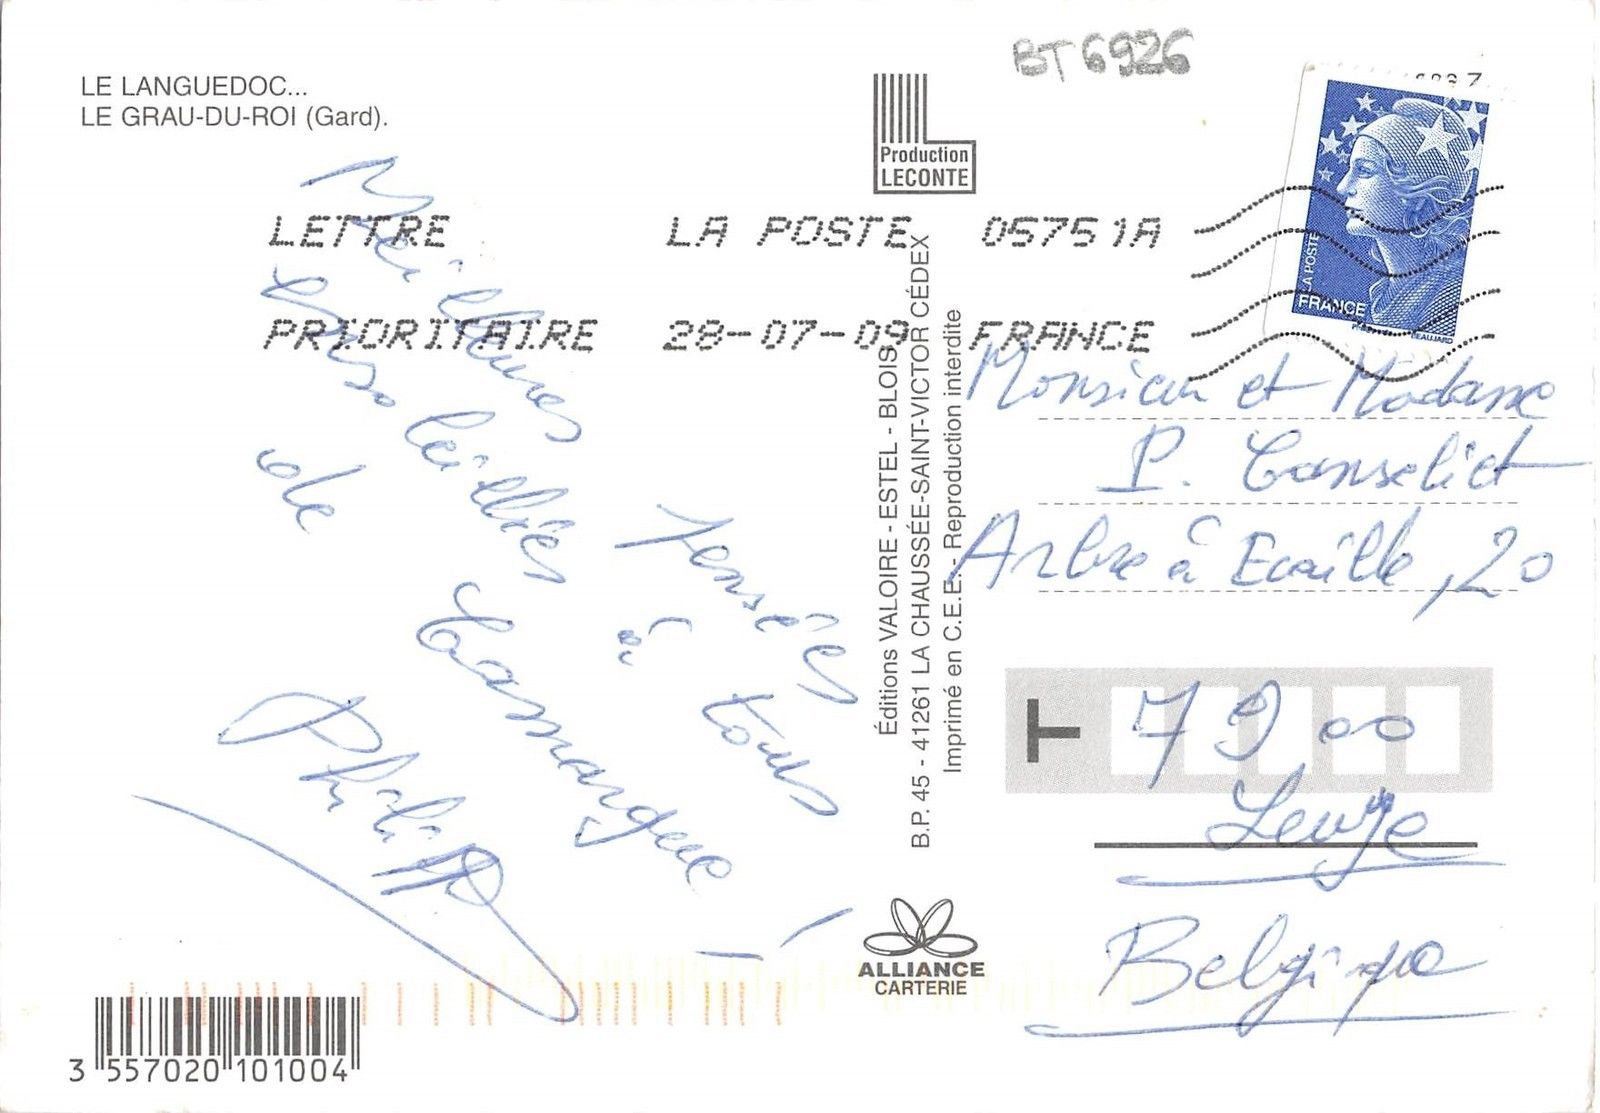 LE LANGUEDOC...
LE GRAU-DU-ROI (Gard).
BT 6926
Production
LECONTE
LETTRE LA POSTE 05751A
PRIORITAIRE 28-07-09 FRANCE
LA POSTE
FRANCE
BEAUJARD
Meilleures
ensoleillées
de
Camargue !
Pensées
à tous !
Philippe
Éditions VALOIRE - ESTEL - BLOIS
B.P. 45 - 41261 LA CHAUSSÉE-SAINT-VICTOR CÉDEX
Imprimé en C.E.E. - Reproduction interdite
Monsieur et Madame
P. Canseliet
Arbre à Ecaille, 20
T 7900
Leuze
Belgique
ALLIANCE
CARTERIE
3 557020 101004